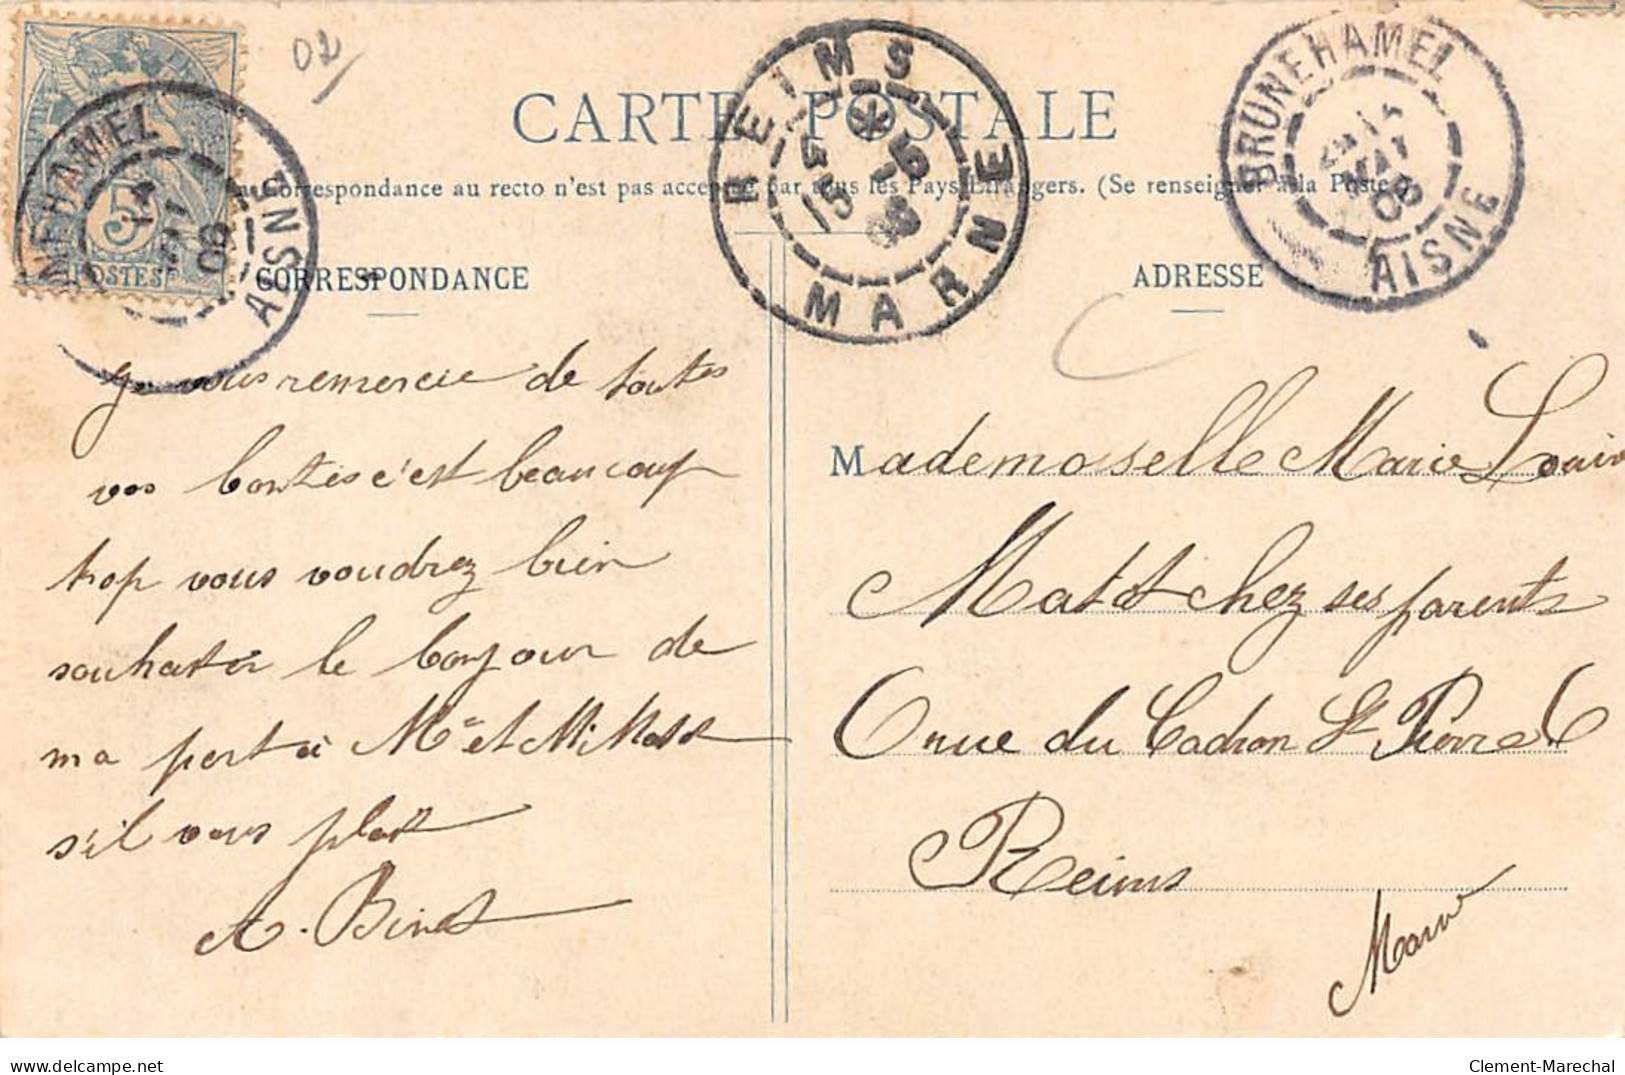 02
CARTE POSTALE
Correspondance au recto n'est pas acceptée par tous les Pays Étrangers. (Se renseigner à la Poste)
REIMS
MARNE
15 5
5
06
BRUNEHAMEL
AISNE
14
MAI
06
NEHAMEL
AISNE
14
06
5
POSTES
CORRESPONDANCE
Je vous remercie de toutes
vos bontés c'est beaucoup
trop vous voudrez bien
souhaiter le bonjour de
ma part à Mr et Mme Matot
s'il vous plait
A. Binet
ADRESSE
Mademoiselle Marie Louise
Matot chez ses parents
rue du Cadran St Pierre
Reims
Marne
delcampe.net
Clement-Marechal